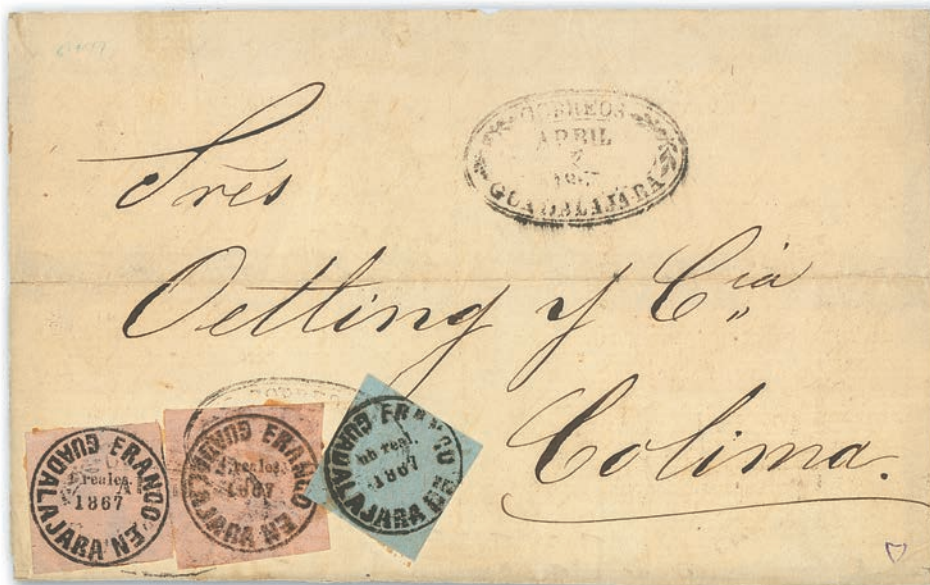 CORREOS
ABRIL
GUADALAJARA
Srēs
Oetling y Cia
Colima.
FRANCO EN GUADALAJARA
reales.
1867
FRANCO EN GUADALAJARA
reales.
1867
FRANCO EN GUADALAJARA
un real.
1867